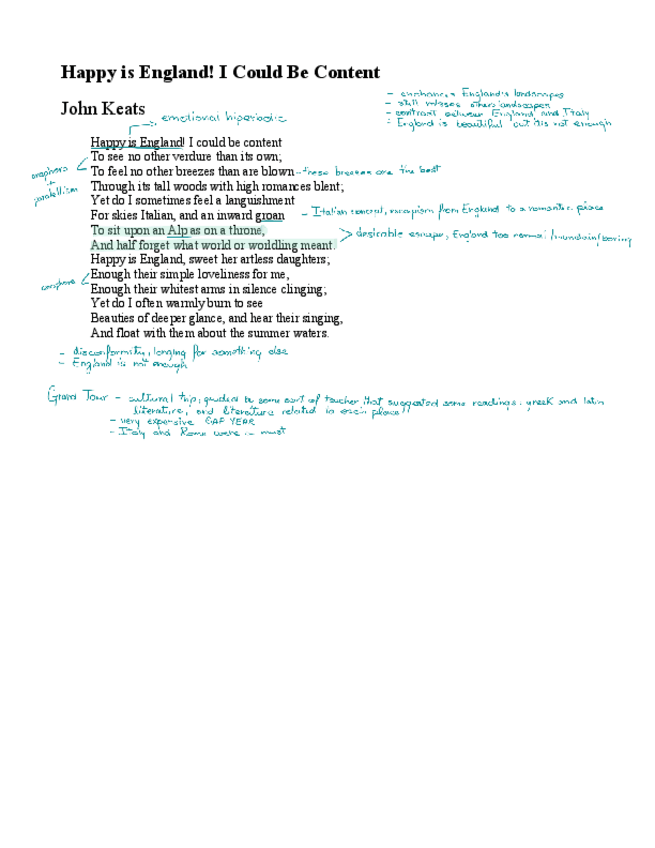 Happy is England! I Could Be Content
- enhances England's landscapes
- still misses others landscapes
John Keats
- contrast between England and Italy
- England is beautiful but it is not enough
emotional hiperbole
Happy is England! I could be content
To see no other verdure than its own;
anaphora
+
parallelism
To feel no other breezes than are blown - these breezes are the best
Through its tall woods with high romances blent;
Yet do I sometimes feel a languishment
For skies Italian, and an inward groan - Italian scenery, escapism from England to a romantic place
To sit upon an Alp as on a throne,
desirable escape, England too normal/mundain/boring
And half forget what world or worldling meant.
Happy is England, sweet her artless daughters;
anaphora
Enough their simple loveliness for me,
Enough their whitest arms in silence clinging;
Yet do I often warmly burn to see
Beauties of deeper glance, and hear their singing,
And float with them about the summer waters.
- disconformity, longing for something else
- England is not enough
Grand Tour - cultural trip, guided by some sort of teacher that suggested some readings: greek and latin
literature, and literature related to each place
- very expensive GAP YEAR
- Italy and Rome were a must